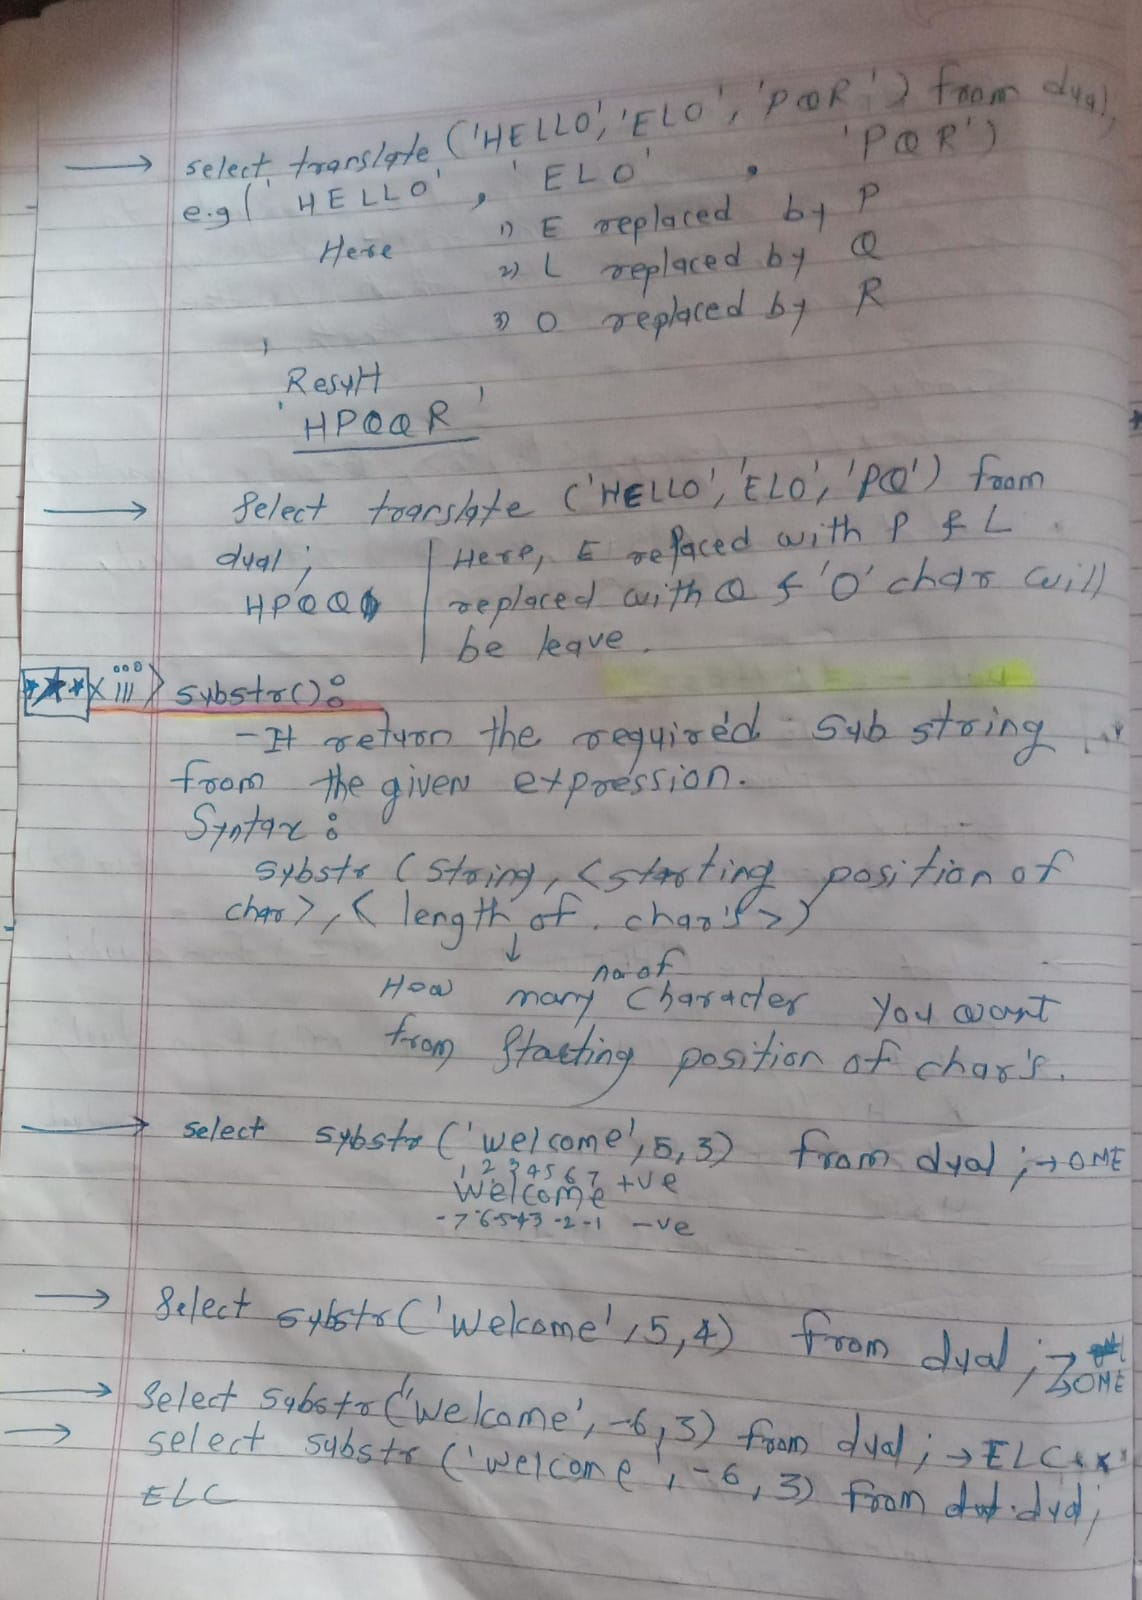 → select translate ('HELLO', 'ELO', 'PQR') from dual;
e.g ( 'HELLO' , 'ELO' , 'PQR')
Here 1) E replaced by P
2) L replaced by Q
3) O replaced by R
Result
'HPQQR'
→ Select translate ('HELLO', 'ELO', 'PQ') from
dual ; | Here, E replaced with P & L
HPQQ | replaced with Q & 'O' char will
be leave.
*** iii> substr():
- It return the required sub string
from the given expression.
Syntax :
substr (string, <starting position of
char>, < length of char's >)
↓
no. of
How many character you want
from starting position of char's.
→ select substr ('welcome', 5, 3) from dual ; → OME
1 2 3 4 5 6 7
welcome +ve
-7 -6 -5 -4 -3 -2 -1 -ve
→ Select substr ('welcome', 5, 4) from dual ; →
OME
→ Select substr ('welcome', -6, 3) from dual ; → ELC
→ select substr ('welcome', -6, 3) from dual ;
ELC